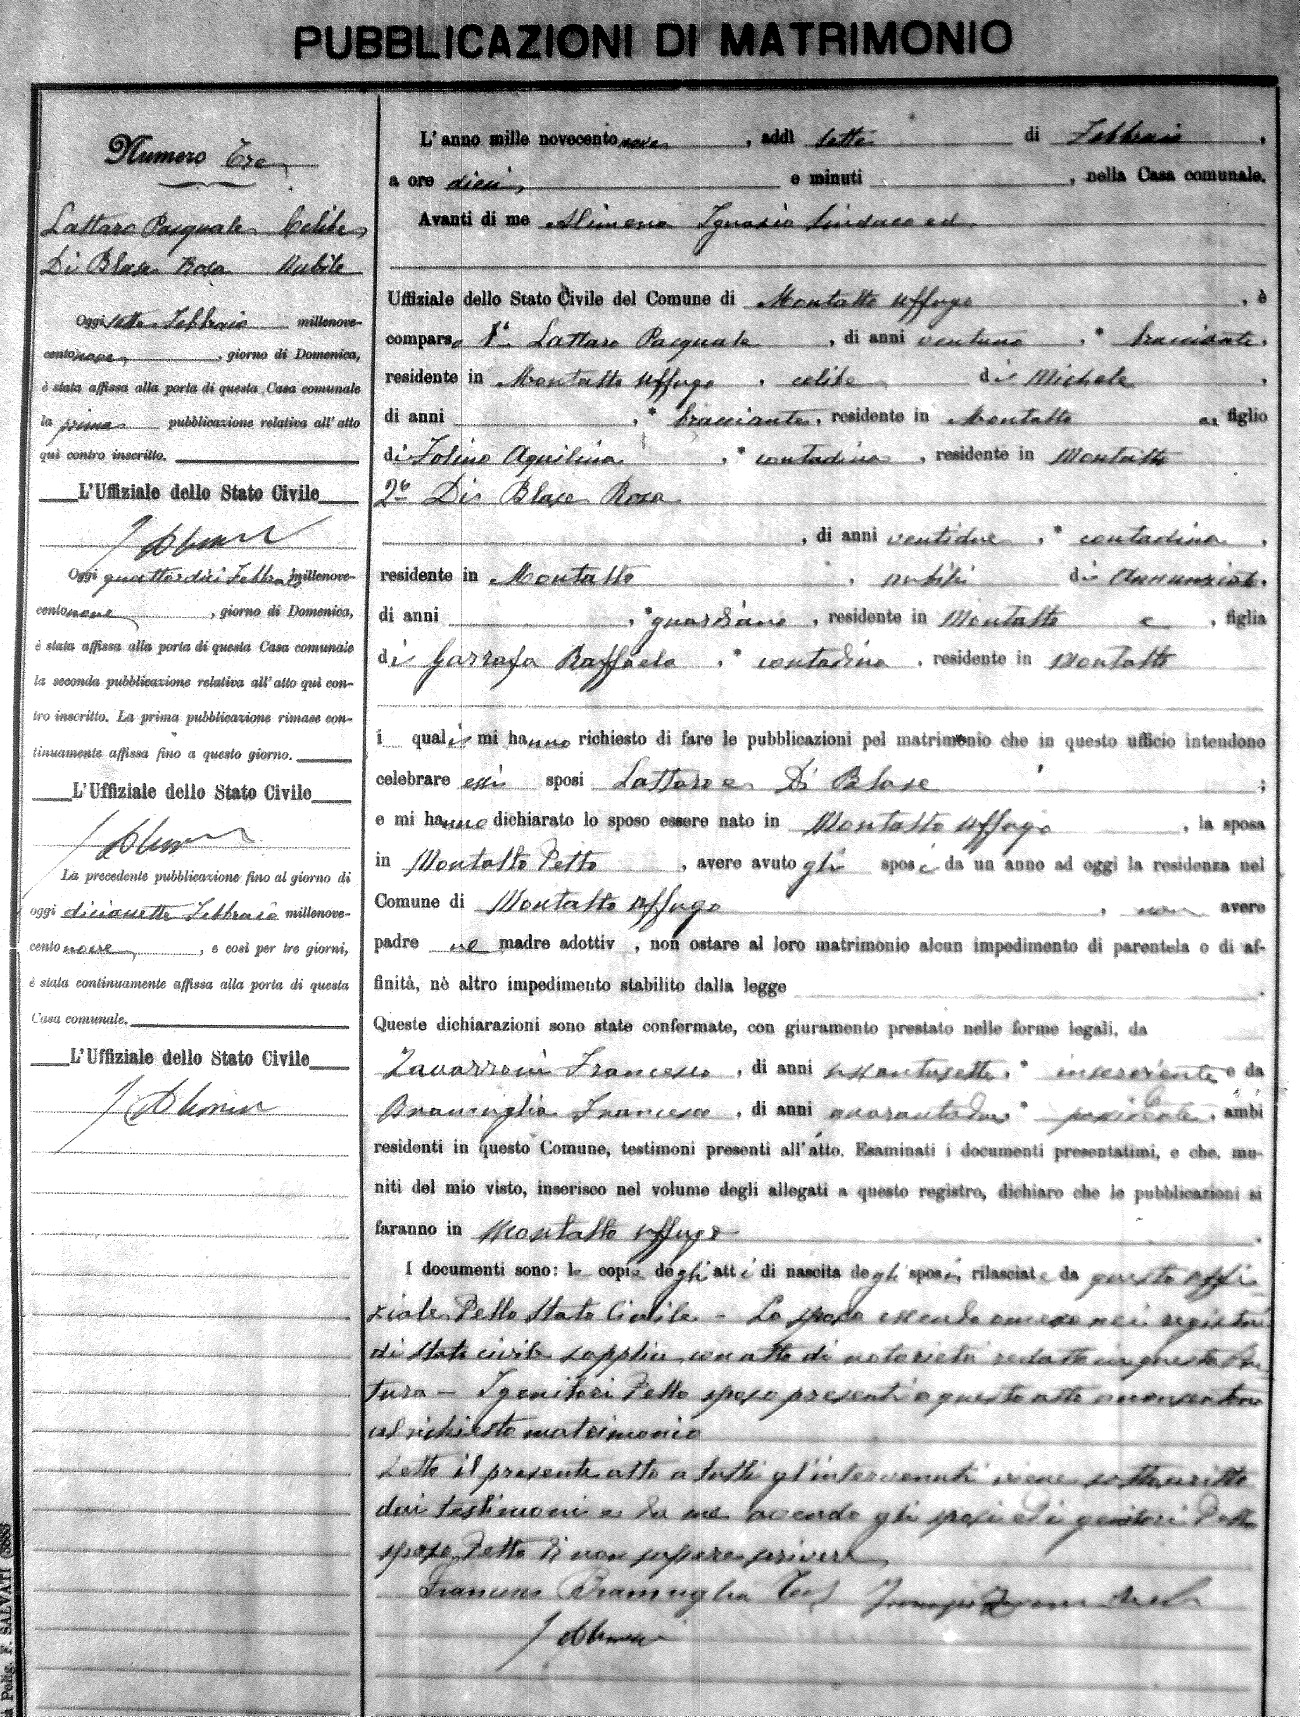 PUBBLICAZIONI DI MATRIMONIO
Numero Tre
Lattaro Pasquale Celibe
Di Blase Rosa Nubile
Oggi sette Febbraio millenove-
cento nove, giorno di Domenica,
è stata affissa alla porta di questa Casa comunale
la prima pubblicazione relativa all'atto
quì contro inscritto.
L'Uffiziale dello Stato Civile
Oggi quattordici Febbraio millenove-
cento nove, giorno di Domenica,
è stata affissa alla porta di questa Casa comunale
la seconda pubblicazione relativa all'atto quì con-
tro inscritto. La prima pubblicazione rimase con-
tinuamente affissa fino a questo giorno.
L'Uffiziale dello Stato Civile
La precedente pubblicazione fino al giorno di
oggi diciasette Febbraio millenove-
cento nove, e così per tre giorni,
è stata continuamente affissa alla porta di questa
Casa comunale.
L'Uffiziale dello Stato Civile
L'anno mille novecento nove, addì sette di Febbraio,
a ore dieci, e minuti , nella Casa comunale.
Avanti di me Alimena Ignazio Sindaco ed
Uffiziale dello Stato Civile del Comune di Montalto Uffugo, è
comparso 1° Lattaro Pasquale, di anni ventuno, * bracciante,
residente in Montalto Uffugo, celibe di Michele,
di anni , * bracciante, residente in Montalto e, figlio
di Tosino Aquilina, * contadina, residente in Montalto
2° Di Blase Rosa
, di anni ventidue, * contadina,
residente in Montalto, nubile di Annunziato,
di anni , * guardiano, residente in Montalto e, figlia
di Garrafa Raffaela, * contadina, residente in Montalto
i quali mi hanno richiesto di fare le pubblicazioni pel matrimonio che in questo ufficio intendono
celebrare essi sposi Lattaro e Di Blase;
e mi hanno dichiarato lo sposo essere nato in Montalto Uffugo, la sposa
in Montalto Detto, avere avuto gli sposi da un anno ad oggi la residenza nel
Comune di Montalto Uffugo, non avere
padre ne madre adottiv , non ostare al loro matrimonio alcun impedimento di parentela o di af-
finità, nè altro impedimento stabilito dalla legge.
Queste dichiarazioni sono state confermate, con giuramento prestato nelle forme legali, da
Zavarroni Francesco, di anni sessantasette, * inserviente e da
Bramuglia Francesco, di anni quarantadue * , ambi
residenti in questo Comune, testimoni presenti all'atto. Esaminati i documenti presentatimi, e che, mu-
niti del mio visto, inserisco nel volume degli allegati a questo registro, dichiaro che le pubblicazioni si
faranno in Montalto Uffugo.
I documenti sono: le copie degli atti di nascita degli sposi, rilasciate da questo offi-
ziale Dello Stato Civile - La sposa essendo omessa nei registri
di stato civile supplica con atto di notorietà redatto in questa Pre
tura - I genitori Dello sposo presenti a questo atto acconsentono
al richiesto matrimonio
Letto il presente atto a tutti gl'intervenuti viene sottoscritto
dai testimoni e da me avendo gli sposi ed i genitori Dello
sposo Detto di non sapere scrivere
Francesco Bramuglia Test
Polig. F. SALVATI